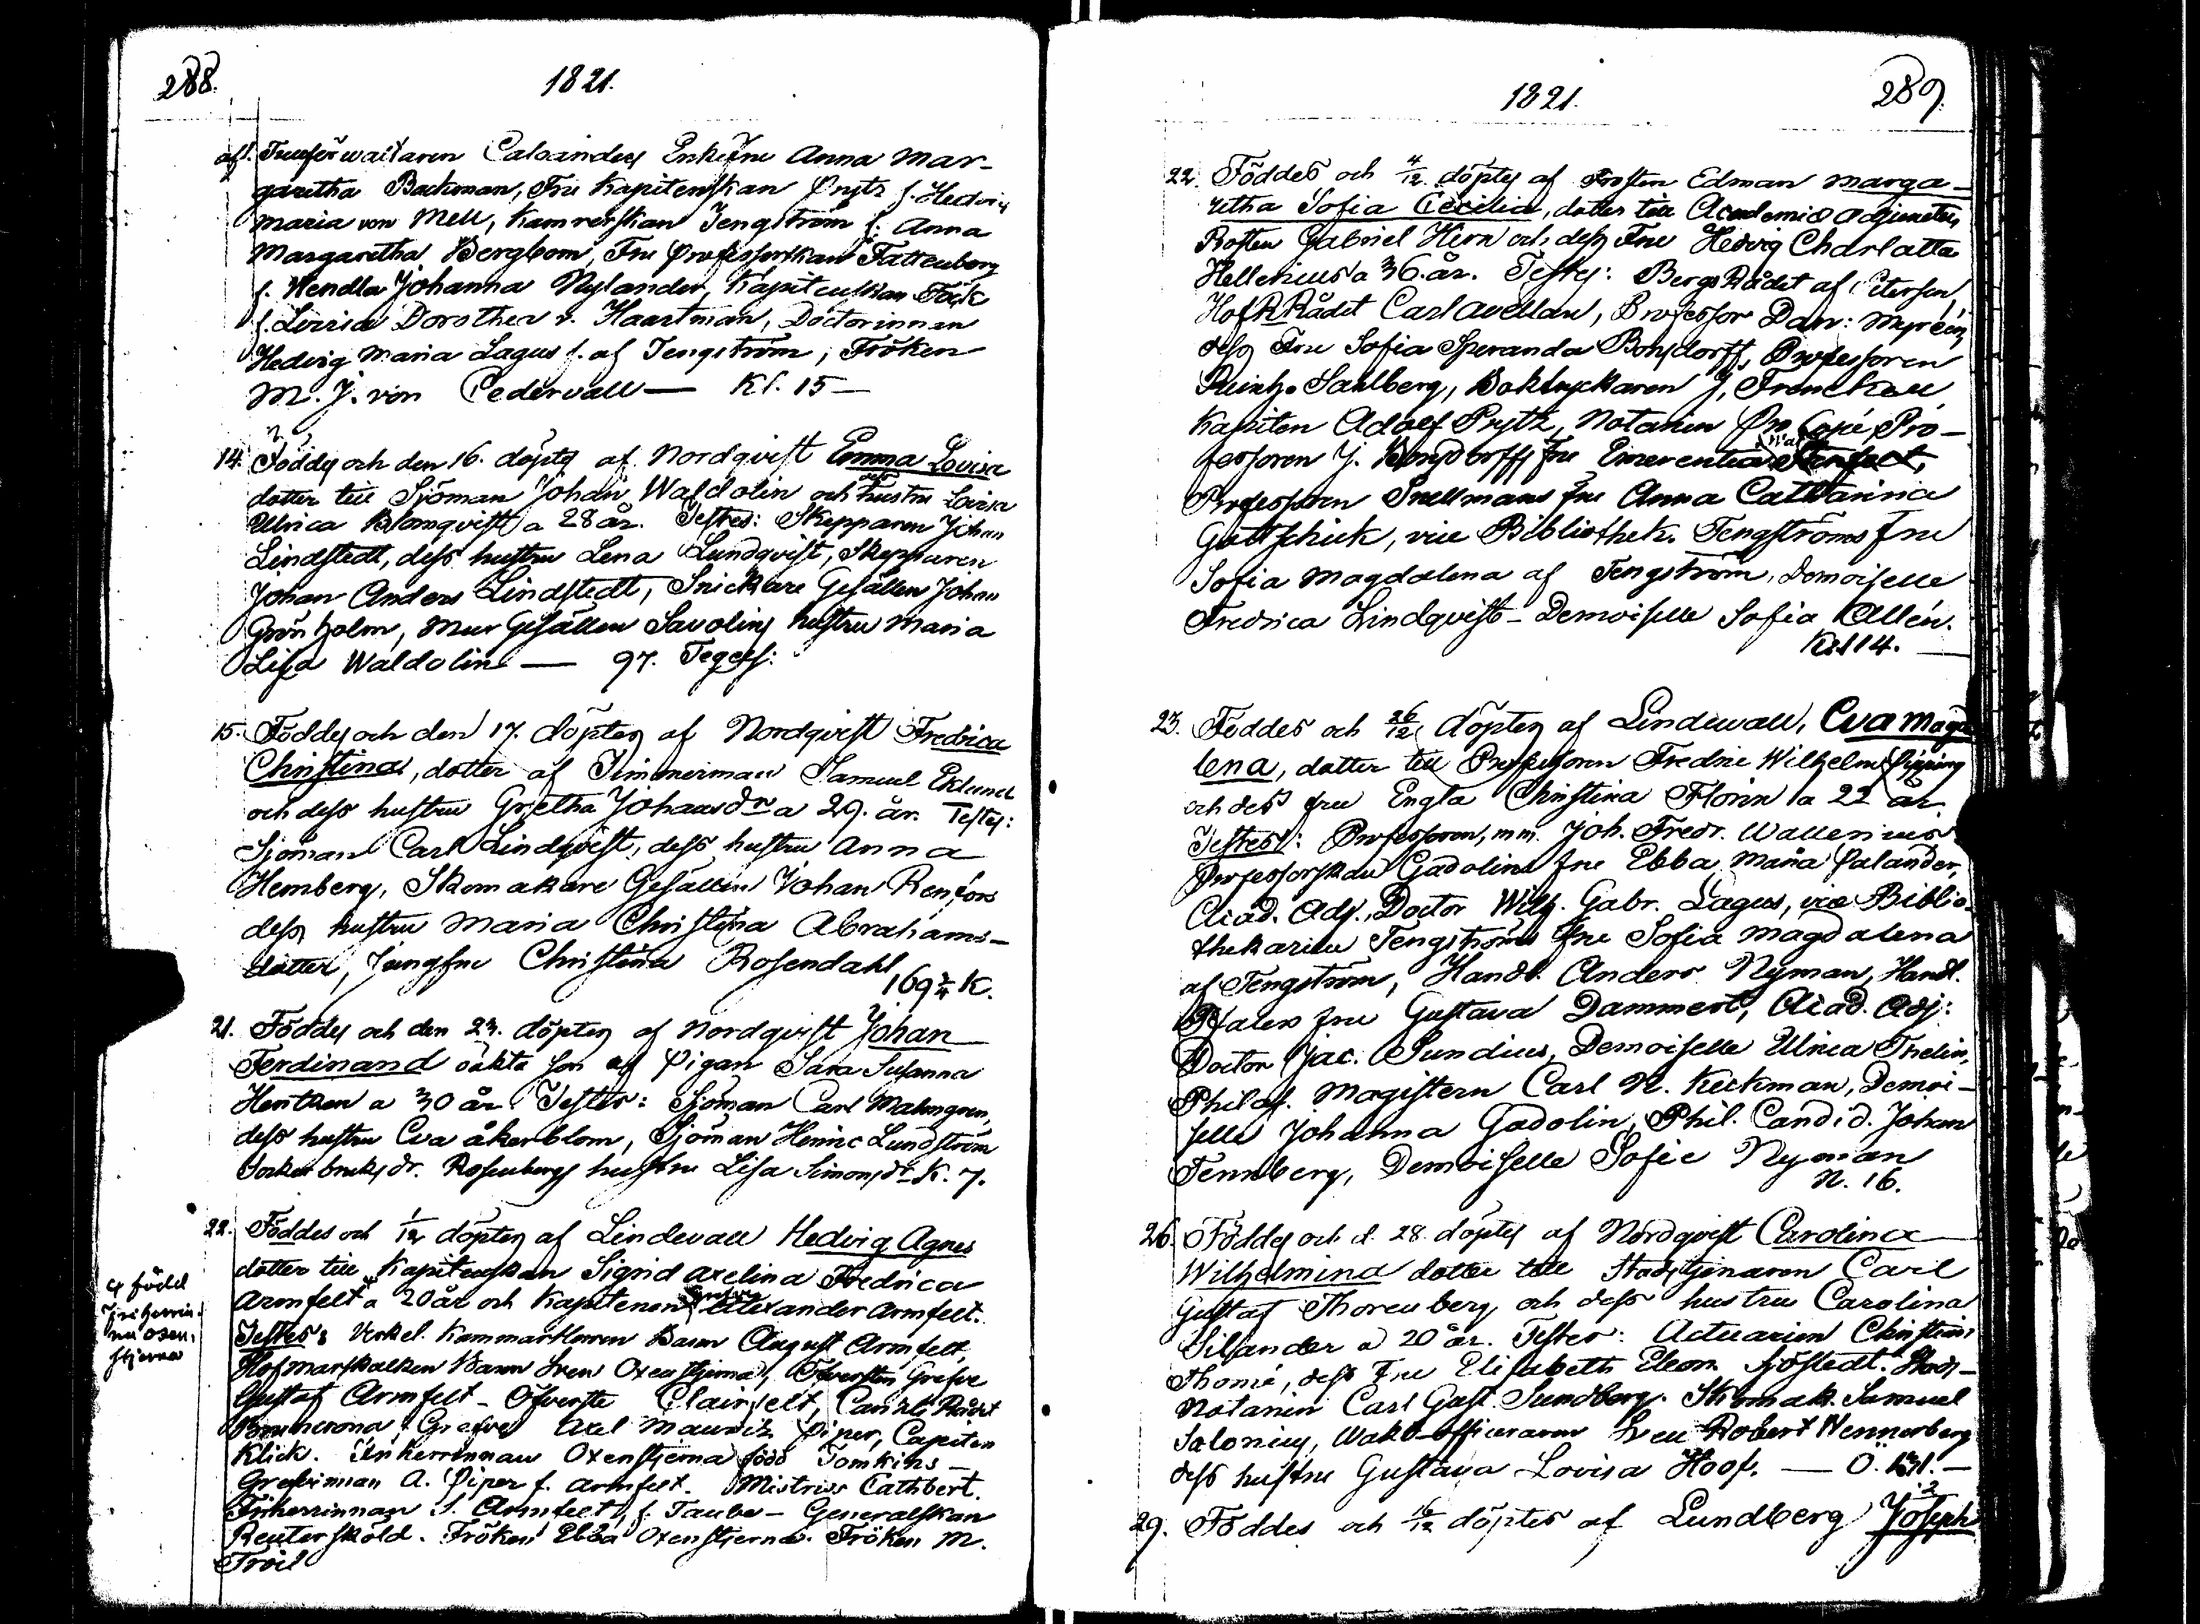 288.
1821.
af. Caloander Enkefru Anna Mar-
garetha Backman, Fru Kapitenskan Prytz f. Hedvig
Maria von Mell, Kamrerskan Tengström f. Anna
Margaretha Bergbom, Fru Professorskan Fattenborg
f. Hendla Johanna Nylander, Kapitenskan Fock
f. Lovisa Dorothea v. Haartman, Doctorinnan
Hedvig Maria Lagus f. af Tengström, Fröken
M. J. von Cedervall — Kl. 15 —
14. Föddes och den 16. döptes af Nordqvist Emma Lovisa
dotter till Sjöman Johan Waldolin och dess hustru Lovisa
Ulrica Blomqvist a 28 år. Testes: Skepparen Johan
Lindstedt, dess hustru Lena Lundqvist, Skepparen
Johan Anders Lindstedt, Snickare Gesällen Johan
Grönholm, Mur Gesällen Savolins hustru Maria
Lisa Waldolin — 97.
15. Föddes och den 17. döptes af Nordqvist Fredrica
Christina, dotter af Timmerman Samuel Eklund
och dess hustru Gretha Johansdr a 29. år. Testes:
Sjöman Carl Lindqvist, dess hustru Anna
Hemberg, Skomakare Gesällen Johan Renfors
dess hustru Maria Christina Abrahams-
dotter, Jungfru Christina Rosendahl
169 K.
21. Föddes och den 23. döptes af Nordqvist Johan
Ferdinand oäkta son af Pigan Sara Susanna
a 30 år. Testes: Sjöman Carl Malmgren,
dess hustru Eva Åkerblom, Sjöman Henric Lundström
Sockerbruksdr. Rosenbergs hustru Lisa Simonsdr K. 7.
22. Föddes och 1/12 döptes af Lindevall Hedvig Agnes
dotter till Kapitenskan Sigrid Axelina Fredrica
Armfelt x a 20 år och Kapitenen Grefve Alexander Armfelt.
x född
friherrin-
na Oxen-
stjerna
Testes: Verkel. Kammarherren Baron August Armfelt,
Hofmarskalken Baron Sven Oxenstjerna, Öfversten Grefve
Gustaf Armfelt - Öfverste Clairfelt, Canzli Rådet
Bonnerona, Grefve Axel Mauritz Piper, Capiten
Klick. Friherrinnan Oxenstjerna född Tomkins -
Grefvinnan A. Piper f. Armfelt. Mistriss Cathbert.
Friherrinnan S. Armfelt, f. Taube - Generalskan
Reuterskold. Fröken Ebba Oxenstjerna. Fröken M.
Troil
289.
1821.
22. Föddes och 4/12 döptes af Prosten Edman Marga-
retha Sofia Cecilia, dotter till Academiæ Adjuncten
Prosten Gabriel Hirn och dess Fru Hedvig Charlotta
Hellenius a 36. år. Testes: BergsRådet af Petersen,
HofRRådet Carl Avellan, Professor Dan: Myréen,
dess Fru Sofia Speranda Bonsdorff, Professoren
Reinh. Sahlberg, Boktryckaren J. Frenckell
Kapiten Adolf Prytz, Notarien Pro-
fessoren J. Bonsdorffs fru Emerentia
Professoren Snellmans fru Anna Catharina
Gottschick, vice Bibliothek. Tengströms fru
Sofia Magdalena af Tengström, Demoiselle
Fredrica Lindqvist - Demoiselle Sofia Allén.
Kl 14.
23. Föddes och 26/12 döptes af Lindewall, Eva Magda
lena, dotter till Professoren Fredric Wilhelm Pipping
och dess fru Engla Christina Florin a 22 år.
Testes: Professoren, m.m. Joh. Fredr. Wallenius
Professorskan Gadolin fru Ebba Maria Palander,
Acad. Adj. Doctor Wilh. Gabr. Lagus, vice Biblio-
thekarien Tengströms fru Sofia Magdalena
af Tengström, Handl. Anders Nyman, Handl.
fru Gustava Dammert, Acad. Adj:
Doctor Jac. Sundius, Demoiselle Ulrica Thelin,
Philos. Magistern Carl N. Keckman, Demoi-
selle Johanna Gadolin, Phil. Candid. Johan
Tennberg, Demoiselle Sofie Nyman
N. 16.
26. Föddes och d. 28. döptes af Nordqvist Carolina
Wilhelmina dotter till Stadstjenaren Carl
Gustaf Thorenberg och dess hustru Carolina
Silander a 20 år. Testes: Actuarien Christian
Thomé, dess Fru Elisabeth Eleon. Sjöstedt. Stads-
Notarien Carl Gust. Sundberg. Skomak. Samuel
Salonius, Wakt-officeraren Sven Robert Wennerberg
dess hustru Gustava Lovisa Hoof. —
29. Föddes och 16/12 döptes af Lundberg Joseph